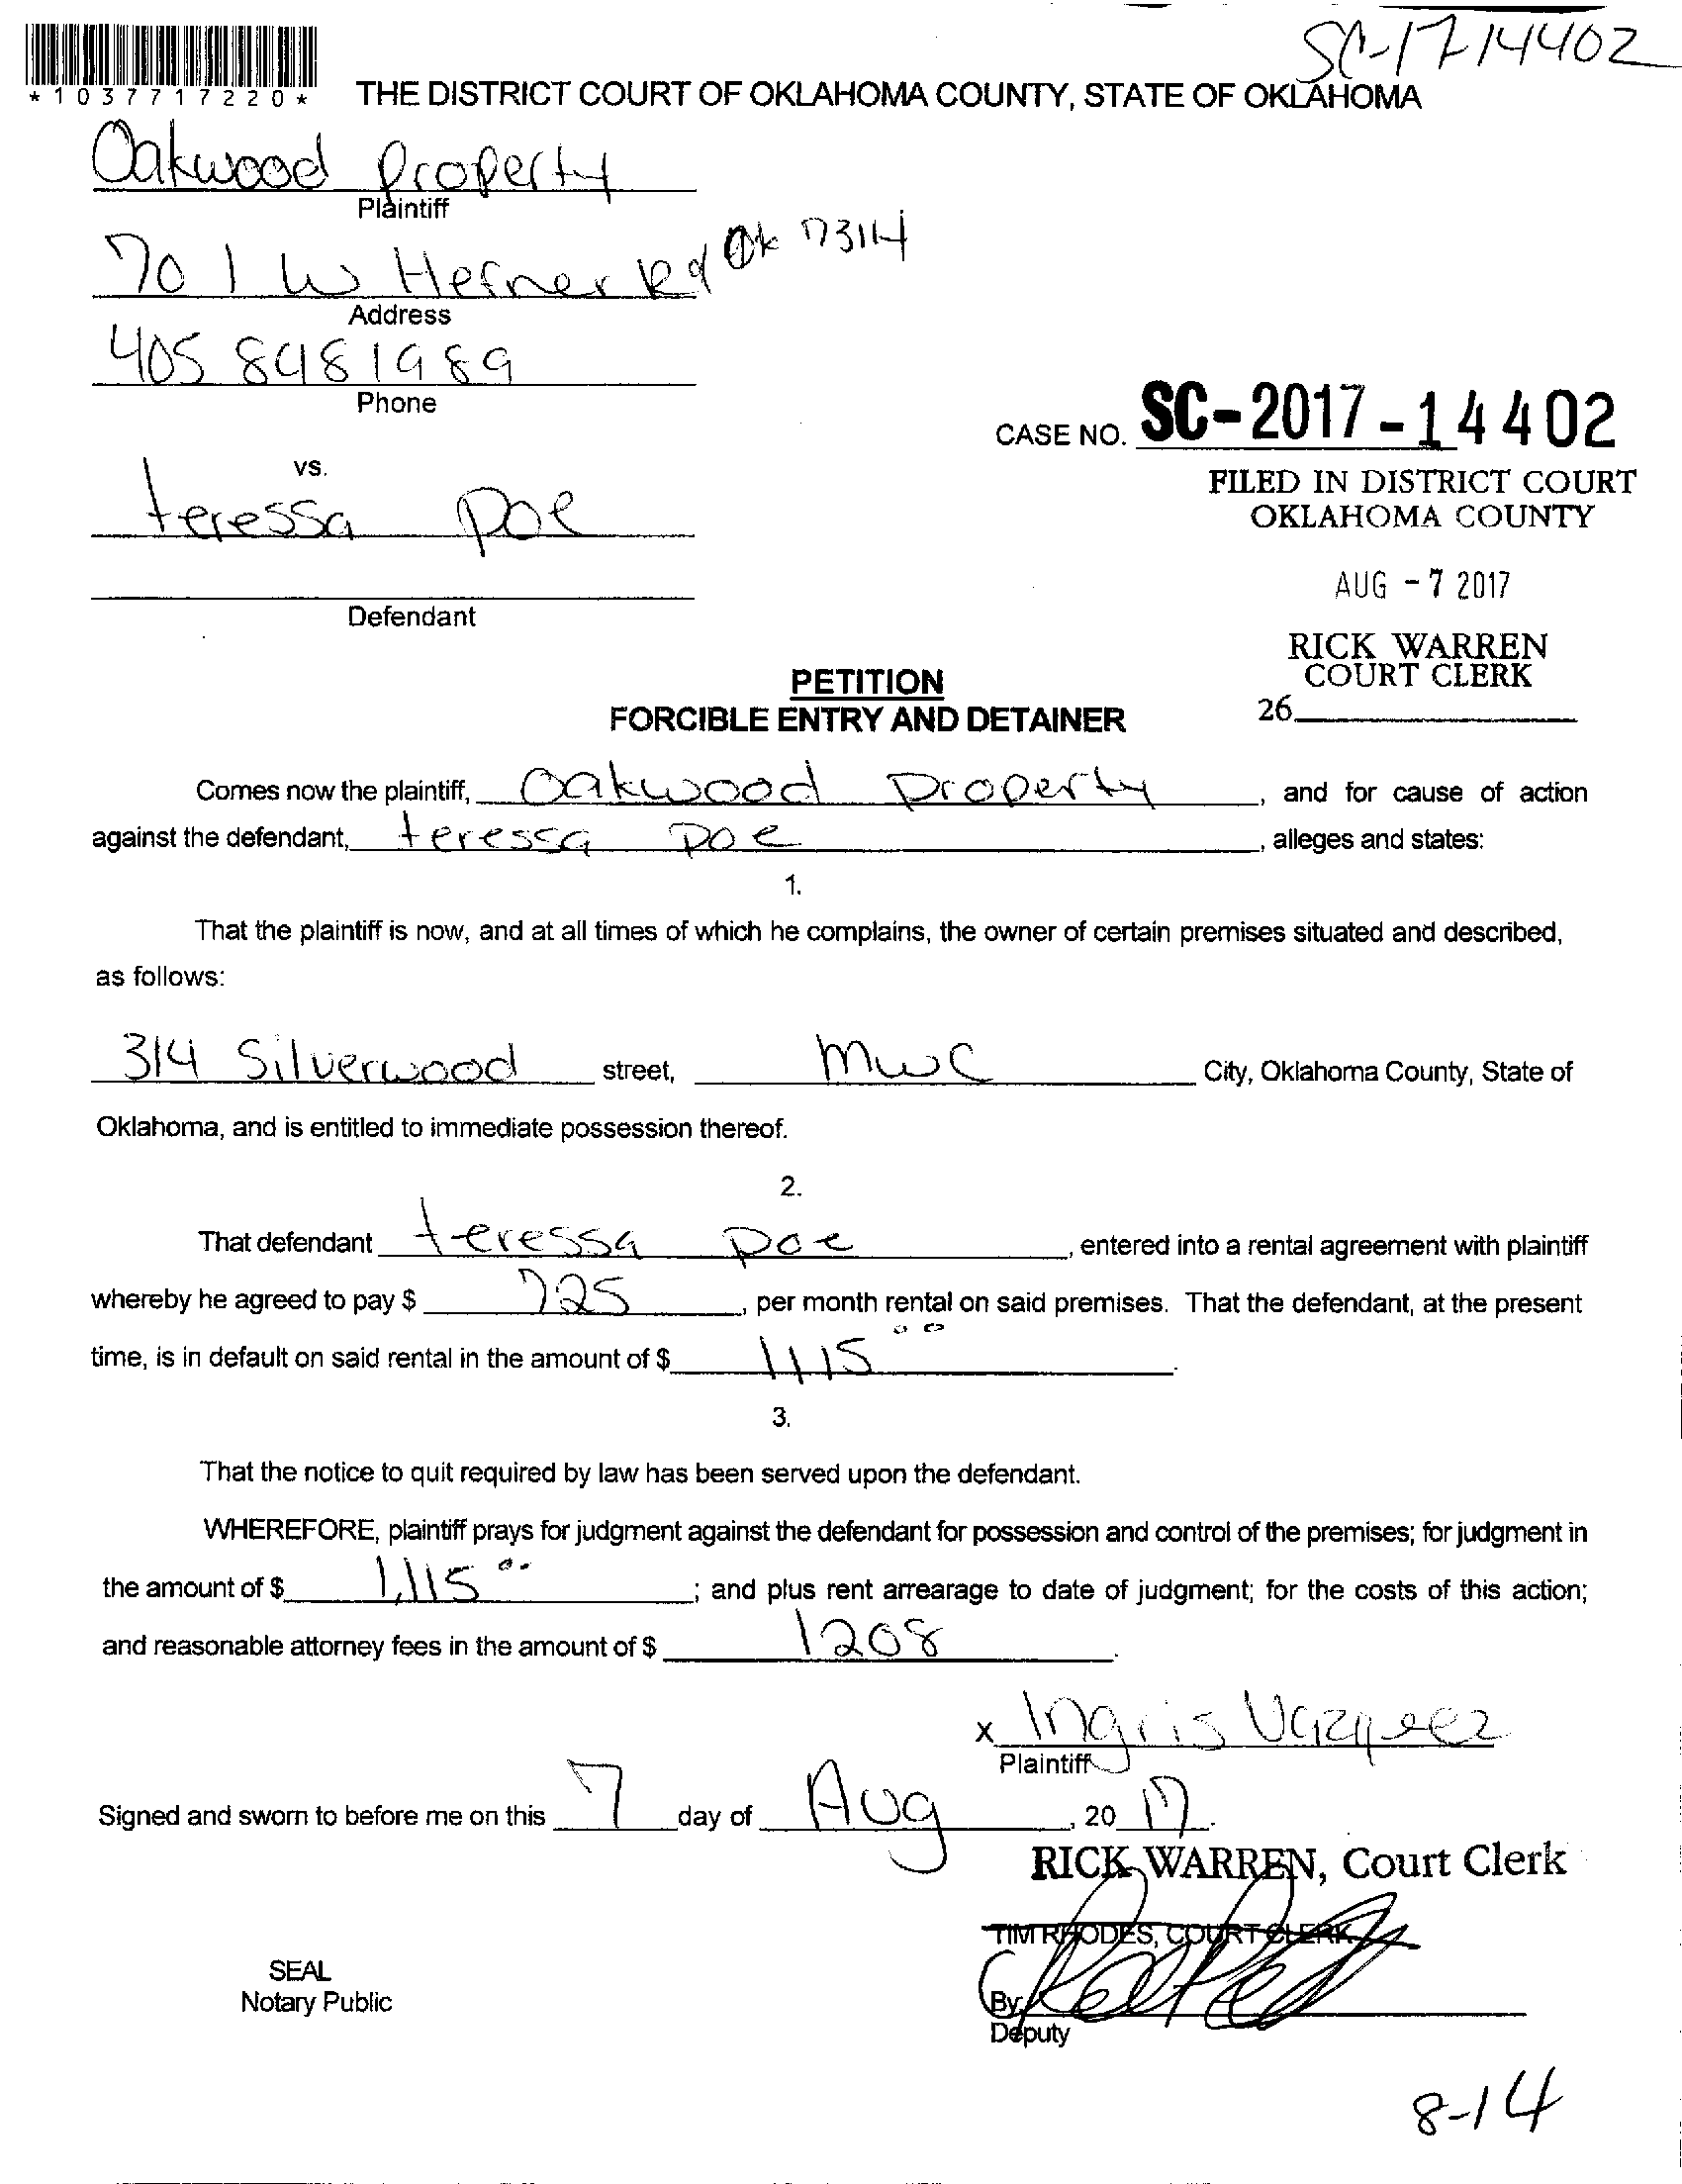 SC-17-14402
*1037717220*
THE DISTRICT COURT OF OKLAHOMA COUNTY, STATE OF OKLAHOMA
Oakwood Property
Plaintiff
701 W Hefner Rd Ok 73114
Address
405 848 1989
Phone
CASE NO. SC-2017-14402
vs.
FILED IN DISTRICT COURT
OKLAHOMA COUNTY
teressa poe
AUG -7 2017
Defendant
RICK WARREN
COURT CLERK
26
PETITION
FORCIBLE ENTRY AND DETAINER
Comes now the plaintiff, Oakwood Property, and for cause of action
against the defendant, teressa poe, alleges and states:
1.
That the plaintiff is now, and at all times of which he complains, the owner of certain premises situated and described,
as follows:
314 Silverwood street, mwc City, Oklahoma County, State of
Oklahoma, and is entitled to immediate possession thereof.
2.
That defendant teressa poe, entered into a rental agreement with plaintiff
whereby he agreed to pay $ 725, per month rental on said premises. That the defendant, at the present
time, is in default on said rental in the amount of $ 1115 00.
3.
That the notice to quit required by law has been served upon the defendant.
WHEREFORE, plaintiff prays for judgment against the defendant for possession and control of the premises; for judgment in
the amount of $ 1,115 00; and plus rent arrearage to date of judgment; for the costs of this action;
and reasonable attorney fees in the amount of $ 1208.
x Ingris Vazquez
Plaintiff
Signed and sworn to before me on this 7 day of Aug, 20 17.
RICK WARREN, Court Clerk
TIM RHODES, COURT CLERK
SEAL
Notary Public
By
Deputy
8-14